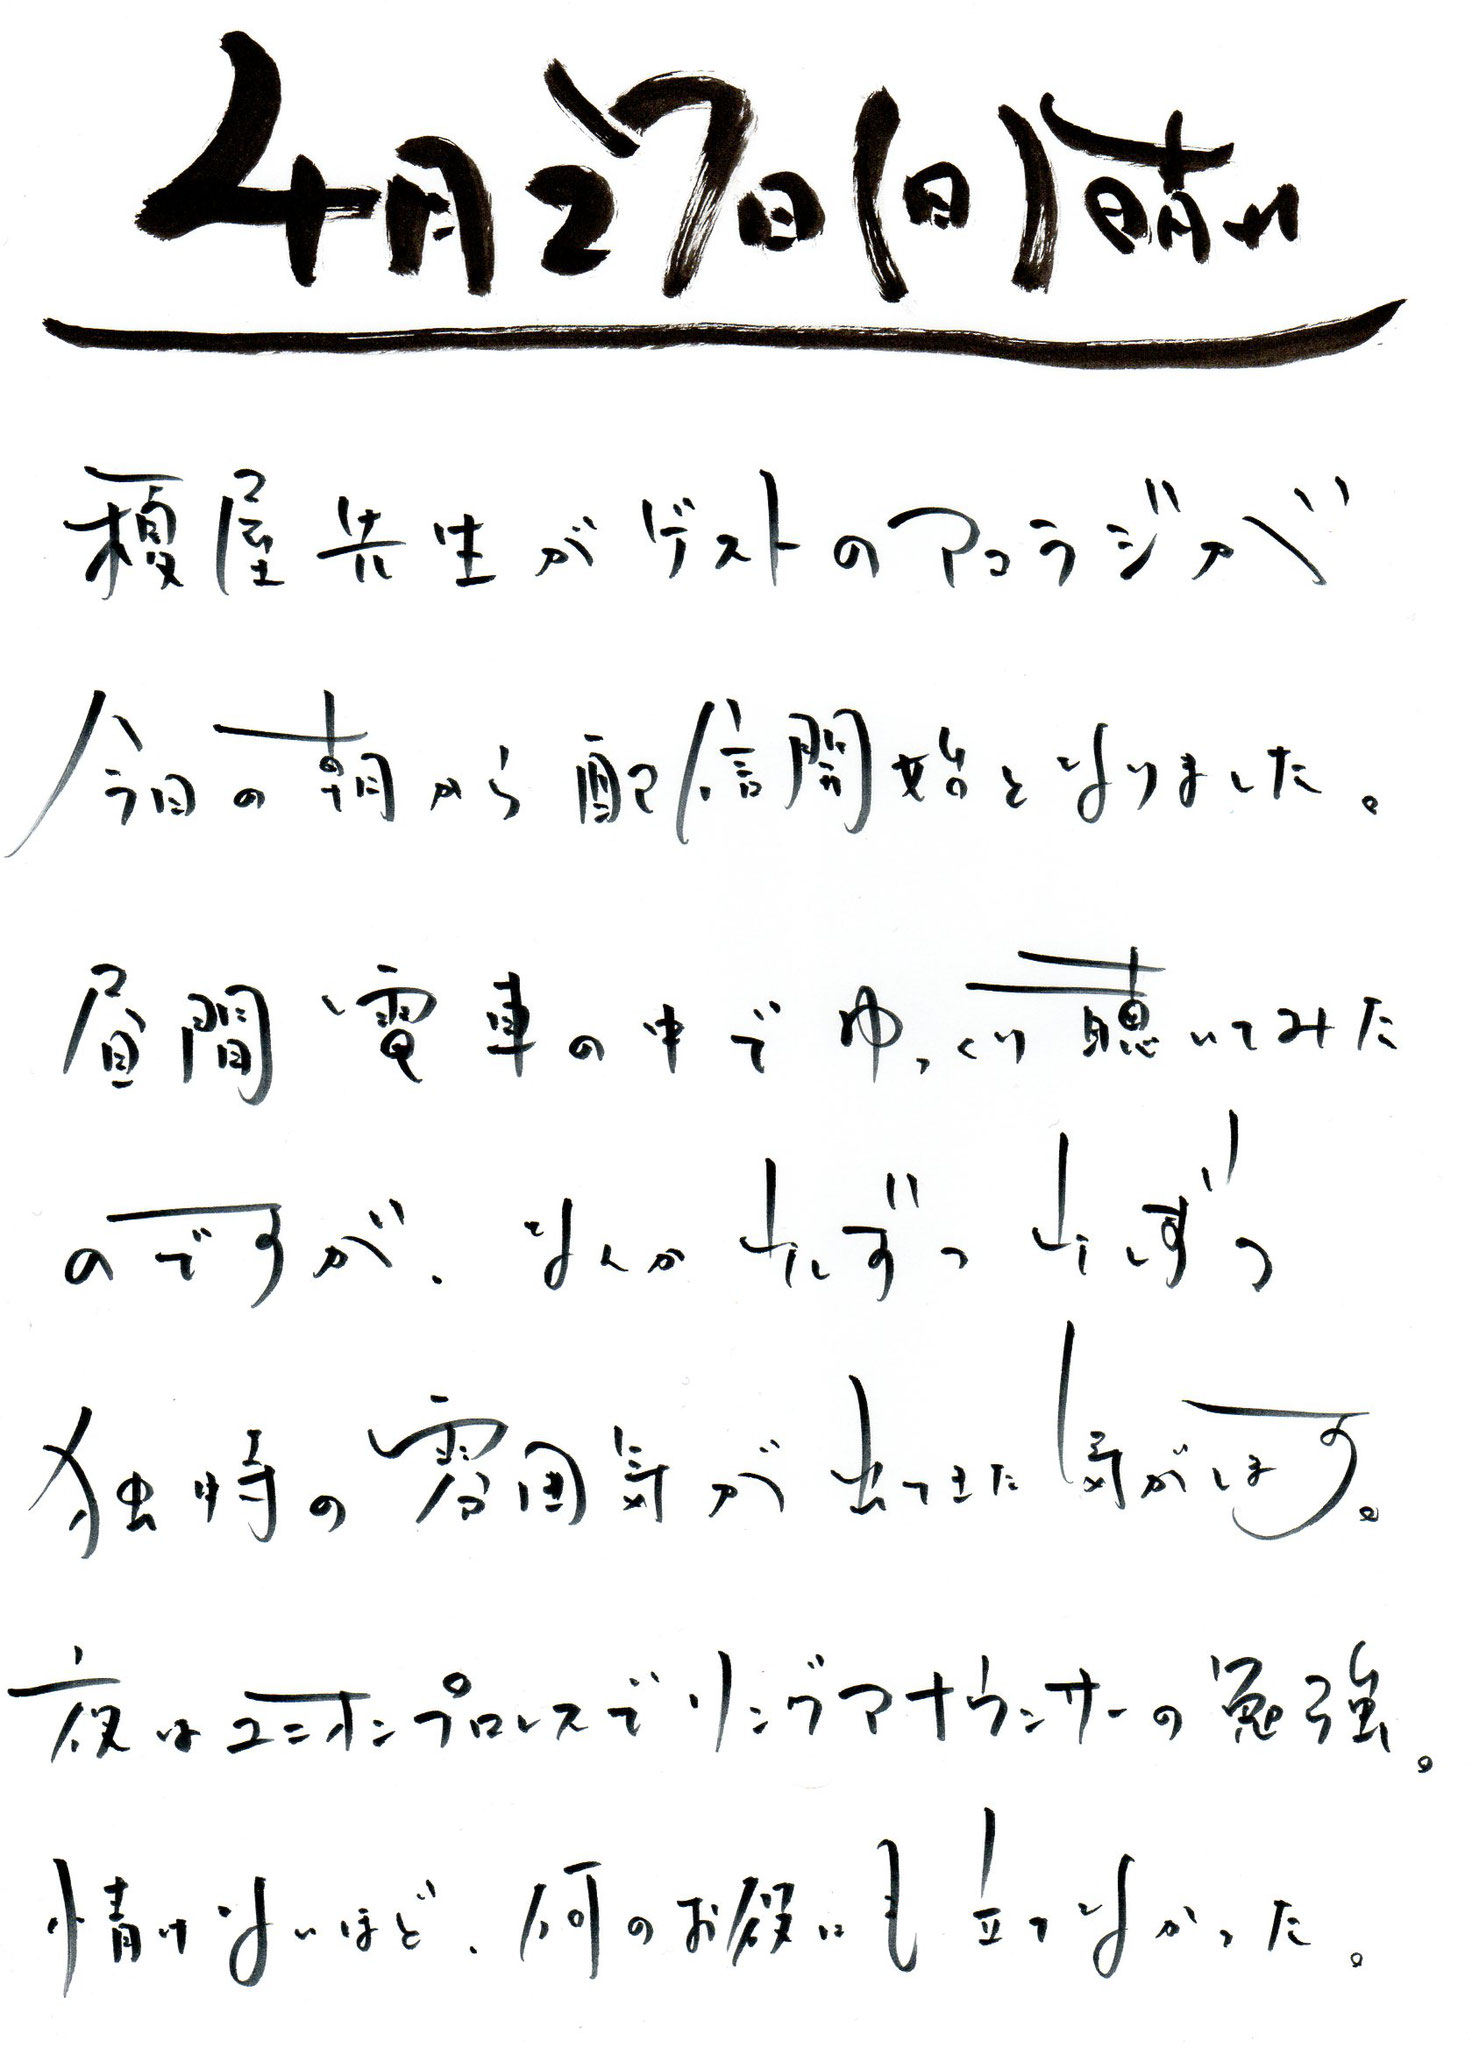 4月27日(日)晴れ
榎屋先生がゲストのアコラジが
今日の朝から配信開始となりました。
昼間電車の中でゆっくり聴いてみた
のですが、なんか少しずつ少しずつ
独特の雰囲気が出てきた気がします。
夜はユニオンプロレスでリングアナウンサーの勉強。
情けないほど、何のお役にも立てなかった。